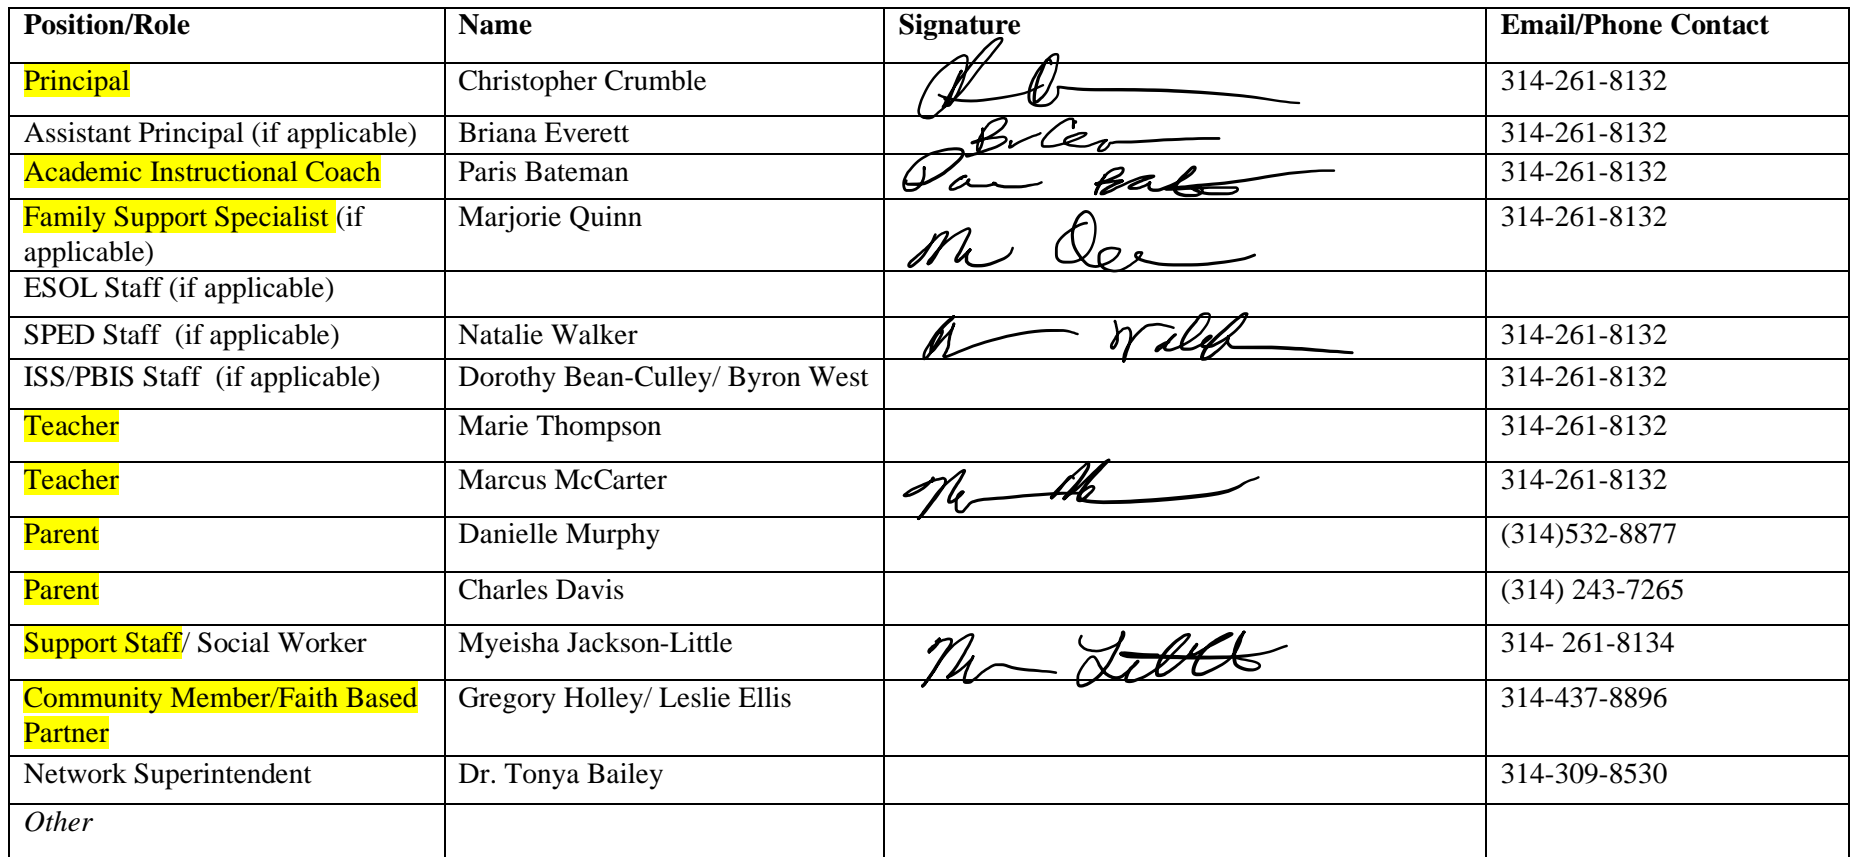 Position/Role Name Signature Email/Phone Contact
Principal Christopher Crumble 314-261-8132
Assistant Principal (if applicable) Briana Everett 314-261-8132
Academic Instructional Coach Paris Bateman 314-261-8132
Family Support Specialist (if Marjorie Quinn 314-261-8132
applicable)
ESOL Staff (if applicable)
SPED Staff  (if applicable) Natalie Walker 314-261-8132
ISS/PBIS Staff  (if applicable) Dorothy Bean-Culley/ Byron West 314-261-8132
Teacher Marie Thompson 314-261-8132
Teacher Marcus McCarter 314-261-8132
Parent Danielle Murphy (314)532-8877
Parent Charles Davis (314) 243-7265
Support Staff/ Social Worker Myeisha Jackson-Little 314- 261-8134
Community Member/Faith Based Gregory Holley/ Leslie Ellis 314-437-8896
Partner
Network Superintendent Dr. Tonya Bailey 314-309-8530
Other